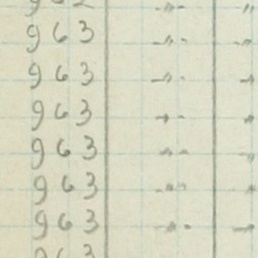 963 -〃- -〃
963 -〃- -〃
963 -〃- -〃
963 -〃- -〃
963 -〃- -〃
963 -〃- -〃